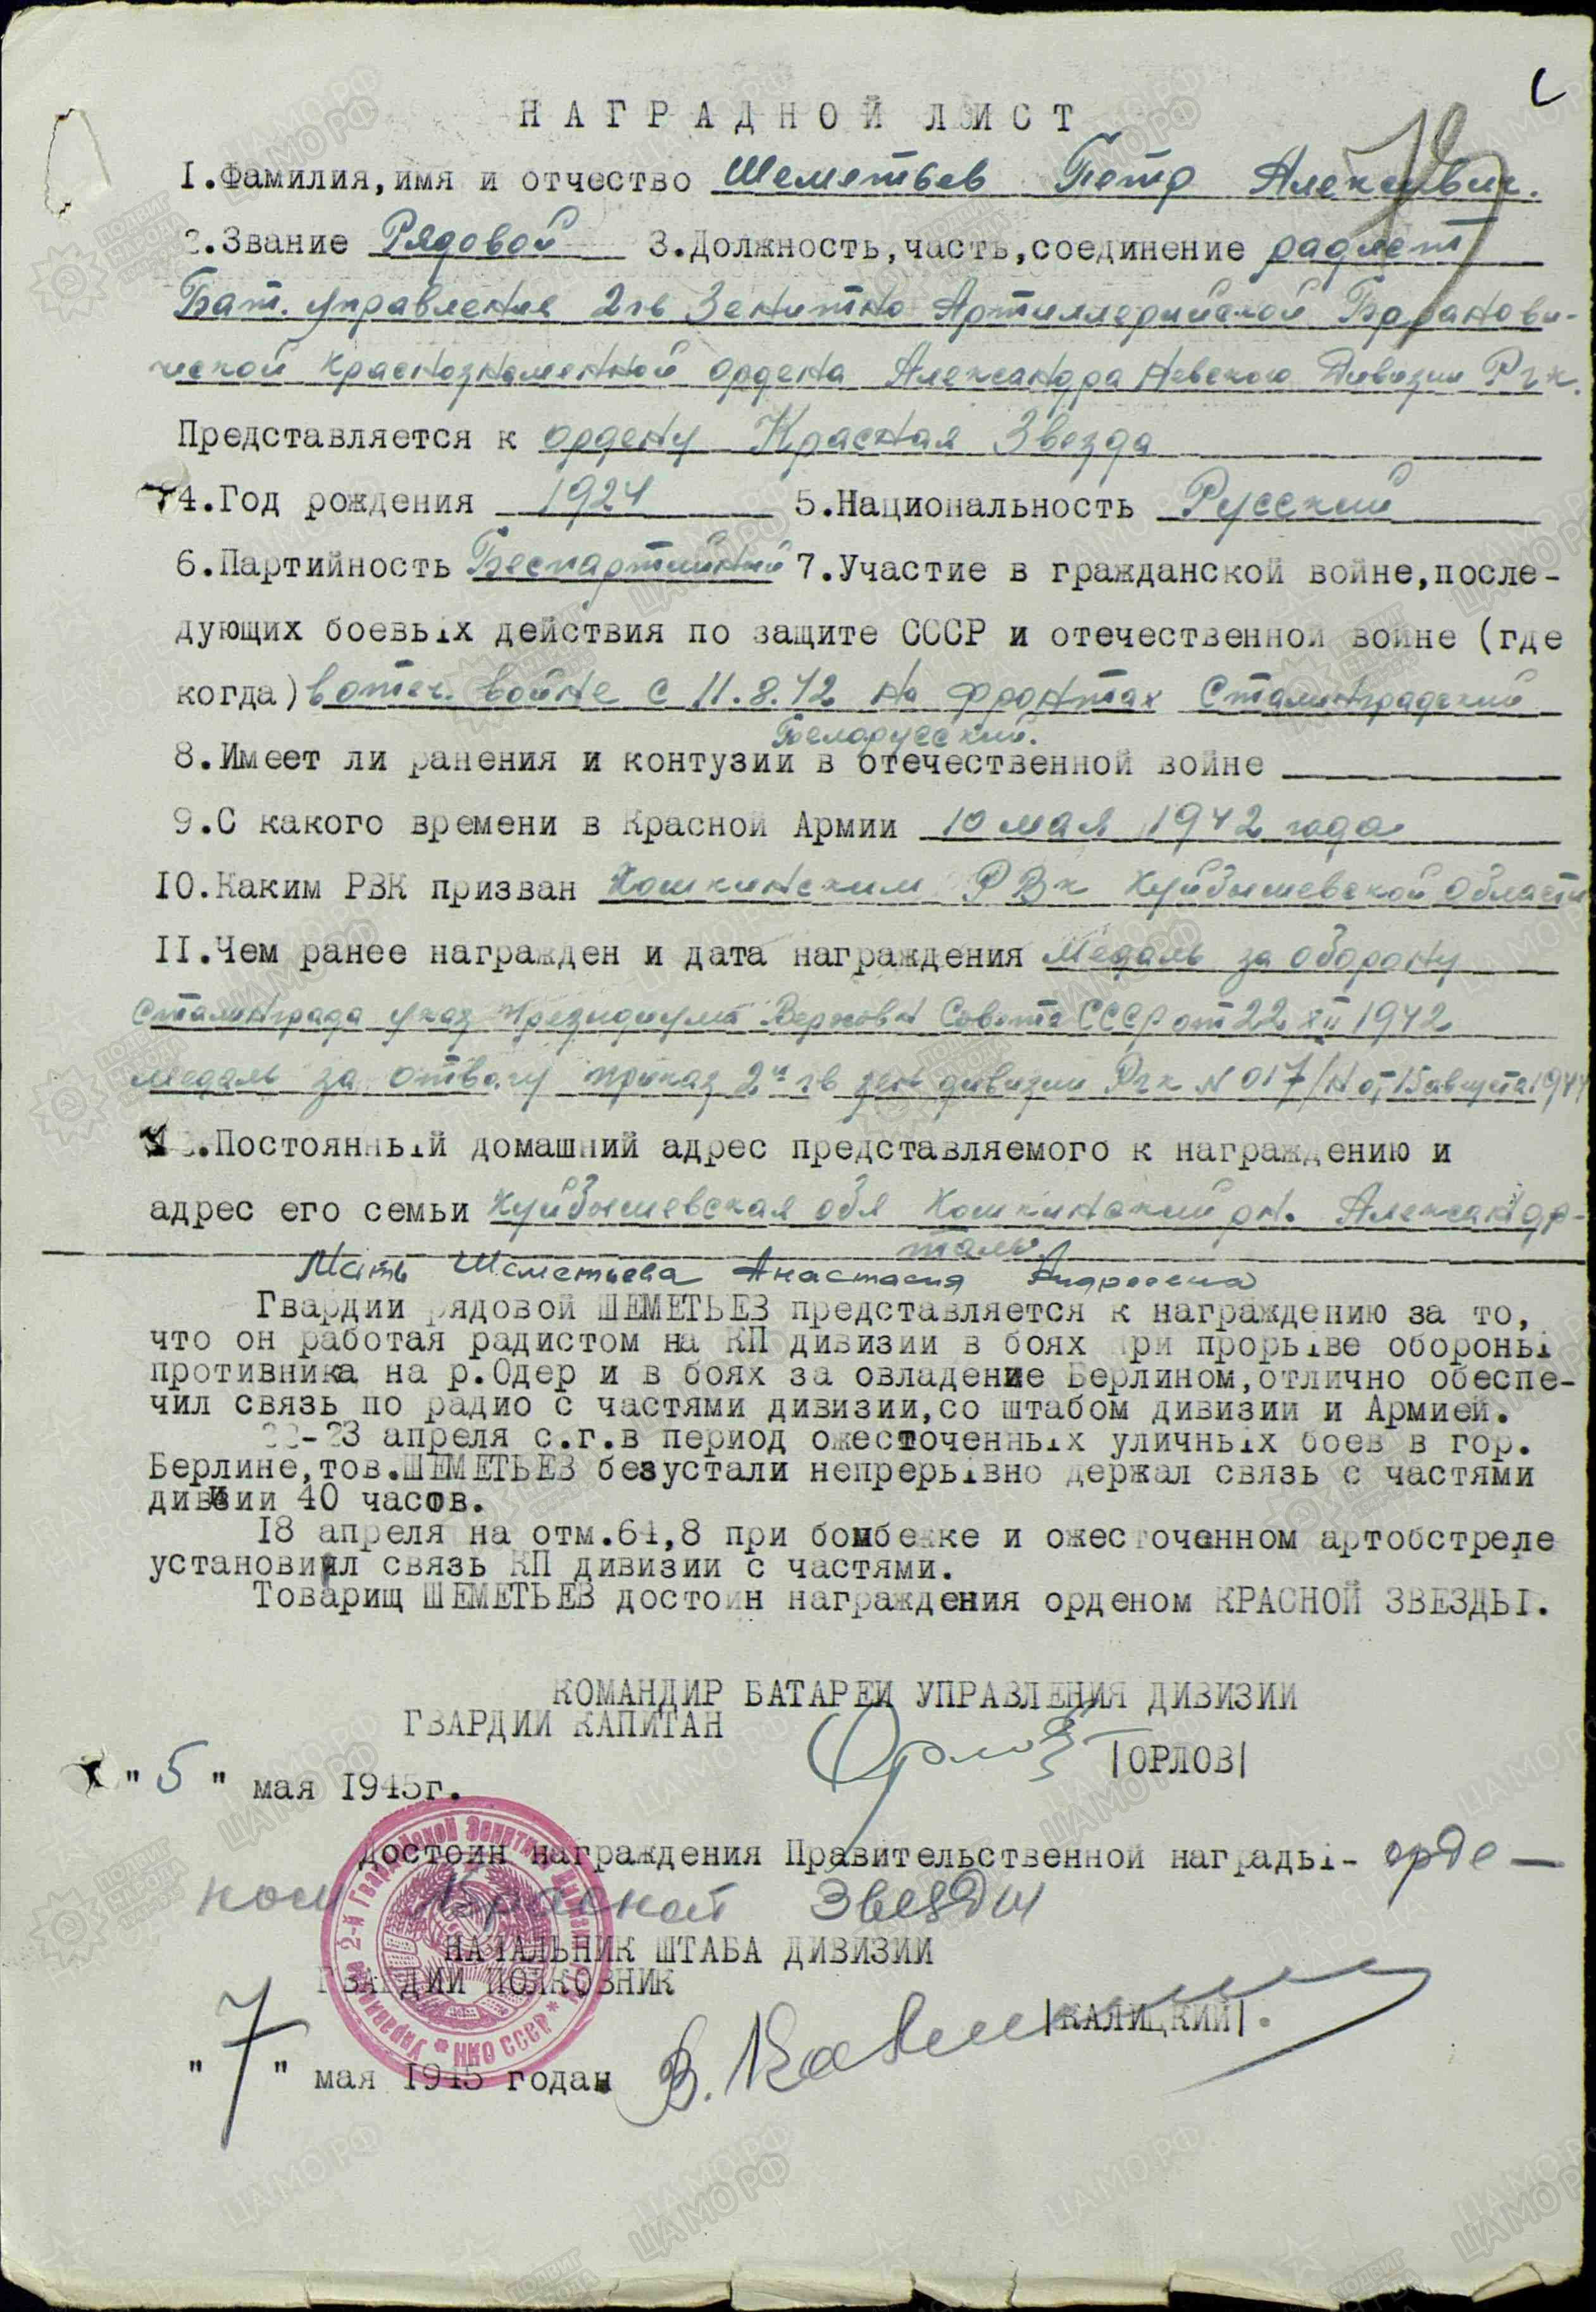 НАГРАДНОЙ ЛИСТ
1.Фамилия,имя и отчество Шеметьев Петр Алексеевич.
2.Звание Рядовой 3.Должность,часть,соединение радист
Бат. управления 2 гв Зенитно Артиллерийской Баранови-
ческой Краснознаменной ордена Александра Невского Дивизии РГК.
Представляется к ордену Красная Звезда
4.Год рождения 1924 5.Национальность Русский
6.Партийность Беспартийный 7.Участие в гражданской войне,после-
дующих боевых действия по защите СССР и отечественной войне (где
когда) в отеч. войне с 11.8.42 на фронтах Сталинградский
Белорусский.
8.Имеет ли ранения и контузии в отечественной войне
9.С какого времени в Красной Армии 10 мая 1942 года
10.Каким РВК призван Кошкинским РВК Куйбышевской области
11.Чем ранее награжден и дата награждения Медаль за оборону
Сталинграда указ Президиума Верховн Совета СССР от 22 XII 1942
медаль за отвагу приказ 2й гв зен дивизии РГК N 017/н от 15 августа 1944
12.Постоянный домашний адрес представляемого к награждению и
адрес его семьи Куйбышевская обл Кошкинский рн. Александр-
таль
Мать Шеметьева Анастасия Андреевна
Гвардии рядовой ШЕМЕТЬЕВ представляется к награждению за то,
что он работая радистом на КП дивизии в боях при прорыве обороны
противника на р.Одер и в боях за овладение Берлином,отлично обеспе-
чил связь по радио с частями дивизии,со штабом дивизии и Армией.
22-23 апреля с.г.в период ожесточенных уличных боев в гор.
Берлине,тов.ШЕМЕТЬЕВ безустали непрерывно держал связь с частями
дивизии 40 часов.
18 апреля на отм.61,8 при бомбежке и ожесточенном артобстреле
установил связь КП дивизии с частями.
Товарищ ШЕМЕТЬЕВ достоин награждения орденом КРАСНОЙ ЗВЕЗДЫ.
КОМАНДИР БАТАРЕИ УПРАВЛЕНИЯ ДИВИЗИИ
ГВАРДИИ КАПИТАН
Орлов |ОРЛОВ|
"5" мая 1945г.
Достоин награждения Правительственной награды- орде-
ном Красной Звезды
НАЧАЛЬНИК ШТАБА ДИВИЗИИ
ГВАРДИИ ПОЛКОВНИК
|КАЛИЦКИЙ|.
"7" мая 1945 года